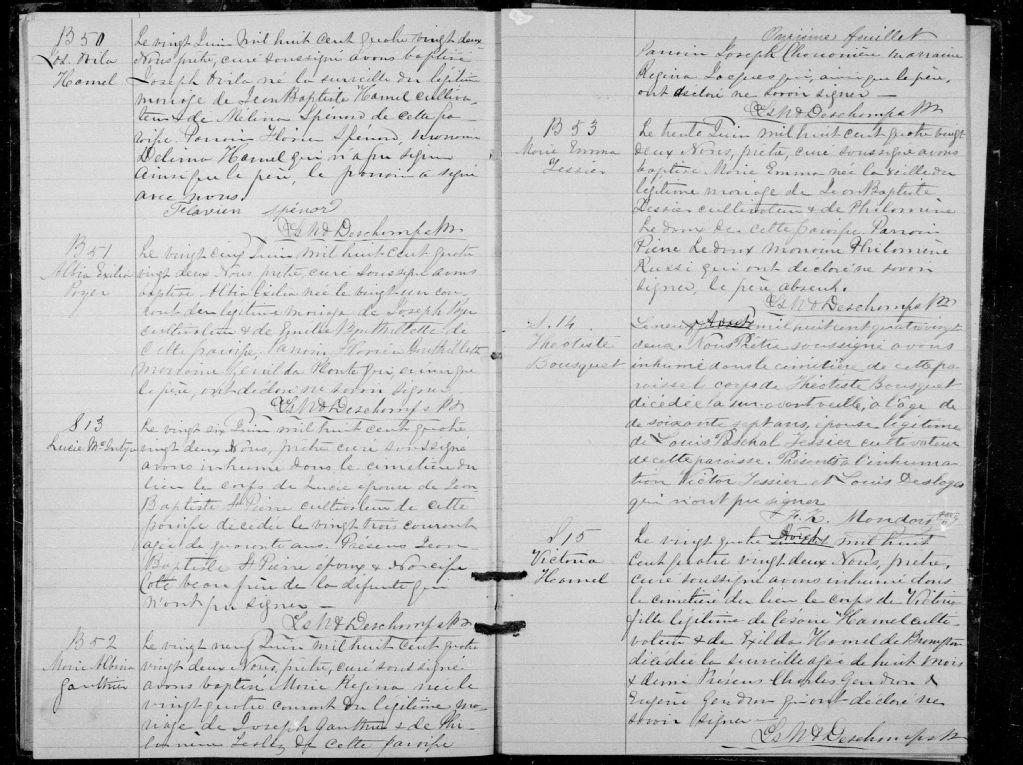 B 50
Jos. Wila
Hamel
Le vingt Juin mil huit cent quatre vingt deux
Nous, prêtre, curé soussigné avons baptisé
Joseph né la surveille du légitime
mariage de Jean Baptiste Hamel cultiva-
teur & de Mélina Spénard de cette pa-
roisse. Parrain Spénard, marraine
Delima Hamel qui n'a pu signer
ainsi que le père, le parrain a signé
avec nous.
Flavien Spénard
Ls W & Deschamps Ptr
B 51
Albia Exilia
Le vingt cinq Juin mil huit cent quatre
vingt deux Nous prêtre, curé soussigné avons
baptisé Albia Exilia née le vingt un cou-
rant du légitime mariage de Joseph
cultivateur & de Bouthillette de
cette paroisse. Parrain Bouthillette
marraine qui, ainsi que
le père, ont déclaré ne savoir signer
Ls W & Deschamps Ptr
S 13
Lucie
Le vingt six Juin mil huit cent quatre
vingt deux Nous, prêtre curé soussigné
avons inhumé dans le cimetière du
lieu le corps de Lucie épouse de Jean
Baptiste St Pierre cultivateur de cette
paroisse décédée le vingt trois courant
agée de quarante ans. Présens Jean
Baptiste St Pierre époux & Narcisse
Cott beau père de la défunte qui
n'ont pu signer —
Ls W & Deschamps Ptr
B 52
Marie Albina
Gauthier
Le vingt neuf Juin mil huit cent quatre
vingt deux Nous, prêtre, curé soussigné
avons baptisé Marie Regina née le
vingt quatre courant du légitime ma-
riage de Joseph Gauthier & de Phi-
lomène de cette paroisse
Onzième feuillet
Parrain Joseph marraine
Regina Jacques qui, ainsi que le père,
ont déclaré ne savoir signer —
Ls W & Deschamps Ptr
B 53
Marie Emma
Tessier
Le trente Juin mil huit cent quatre vingt
deux Nous, prêtre, curé soussigné avons
baptisé Marie Emma née la veille du
légitime mariage de Jean Baptiste
Tessier cultivateur & de Philomène
Ledoux de cette paroisse Parrain
Pierre Ledoux marraine Philomène
qui ont déclaré ne savoir
signer, le père absent.
Ls W & Deschamps Ptr
S. 14
Théotiste
Bousquet
Le neuf Aout mil huit cent quatre vingt
deux. Nous Prêtre soussigné avons
inhumé dans le cimetière de cette pa-
roisse le corps de Théotiste Bousquet
décédée avant veille, à l'âge de
de soixante sept ans, épouse légitime
de Louis Paschal Tessier cultivateur
de cette paroisse. Présents à l'inhuma-
tion Victor Tessier et Louis Desloges
qui n'ont pu signer
Mondor
S 15
Victoria
Hamel
Le vingt quatre Août mil huit
cent quatre vingt deux Nous, prêtre,
curé soussigné avons inhumé dans
le cimetière du lieu le corps de Victoria
fille légitime de Césaire Hamel culti-
vateur & de Exilda Hamel de Brompton
décédée la surveille agée de huit mois
& demi Présens Charles Gendron &
Eugène Gendron qui ont déclaré ne
savoir signer —
Ls W & Deschamps Ptr